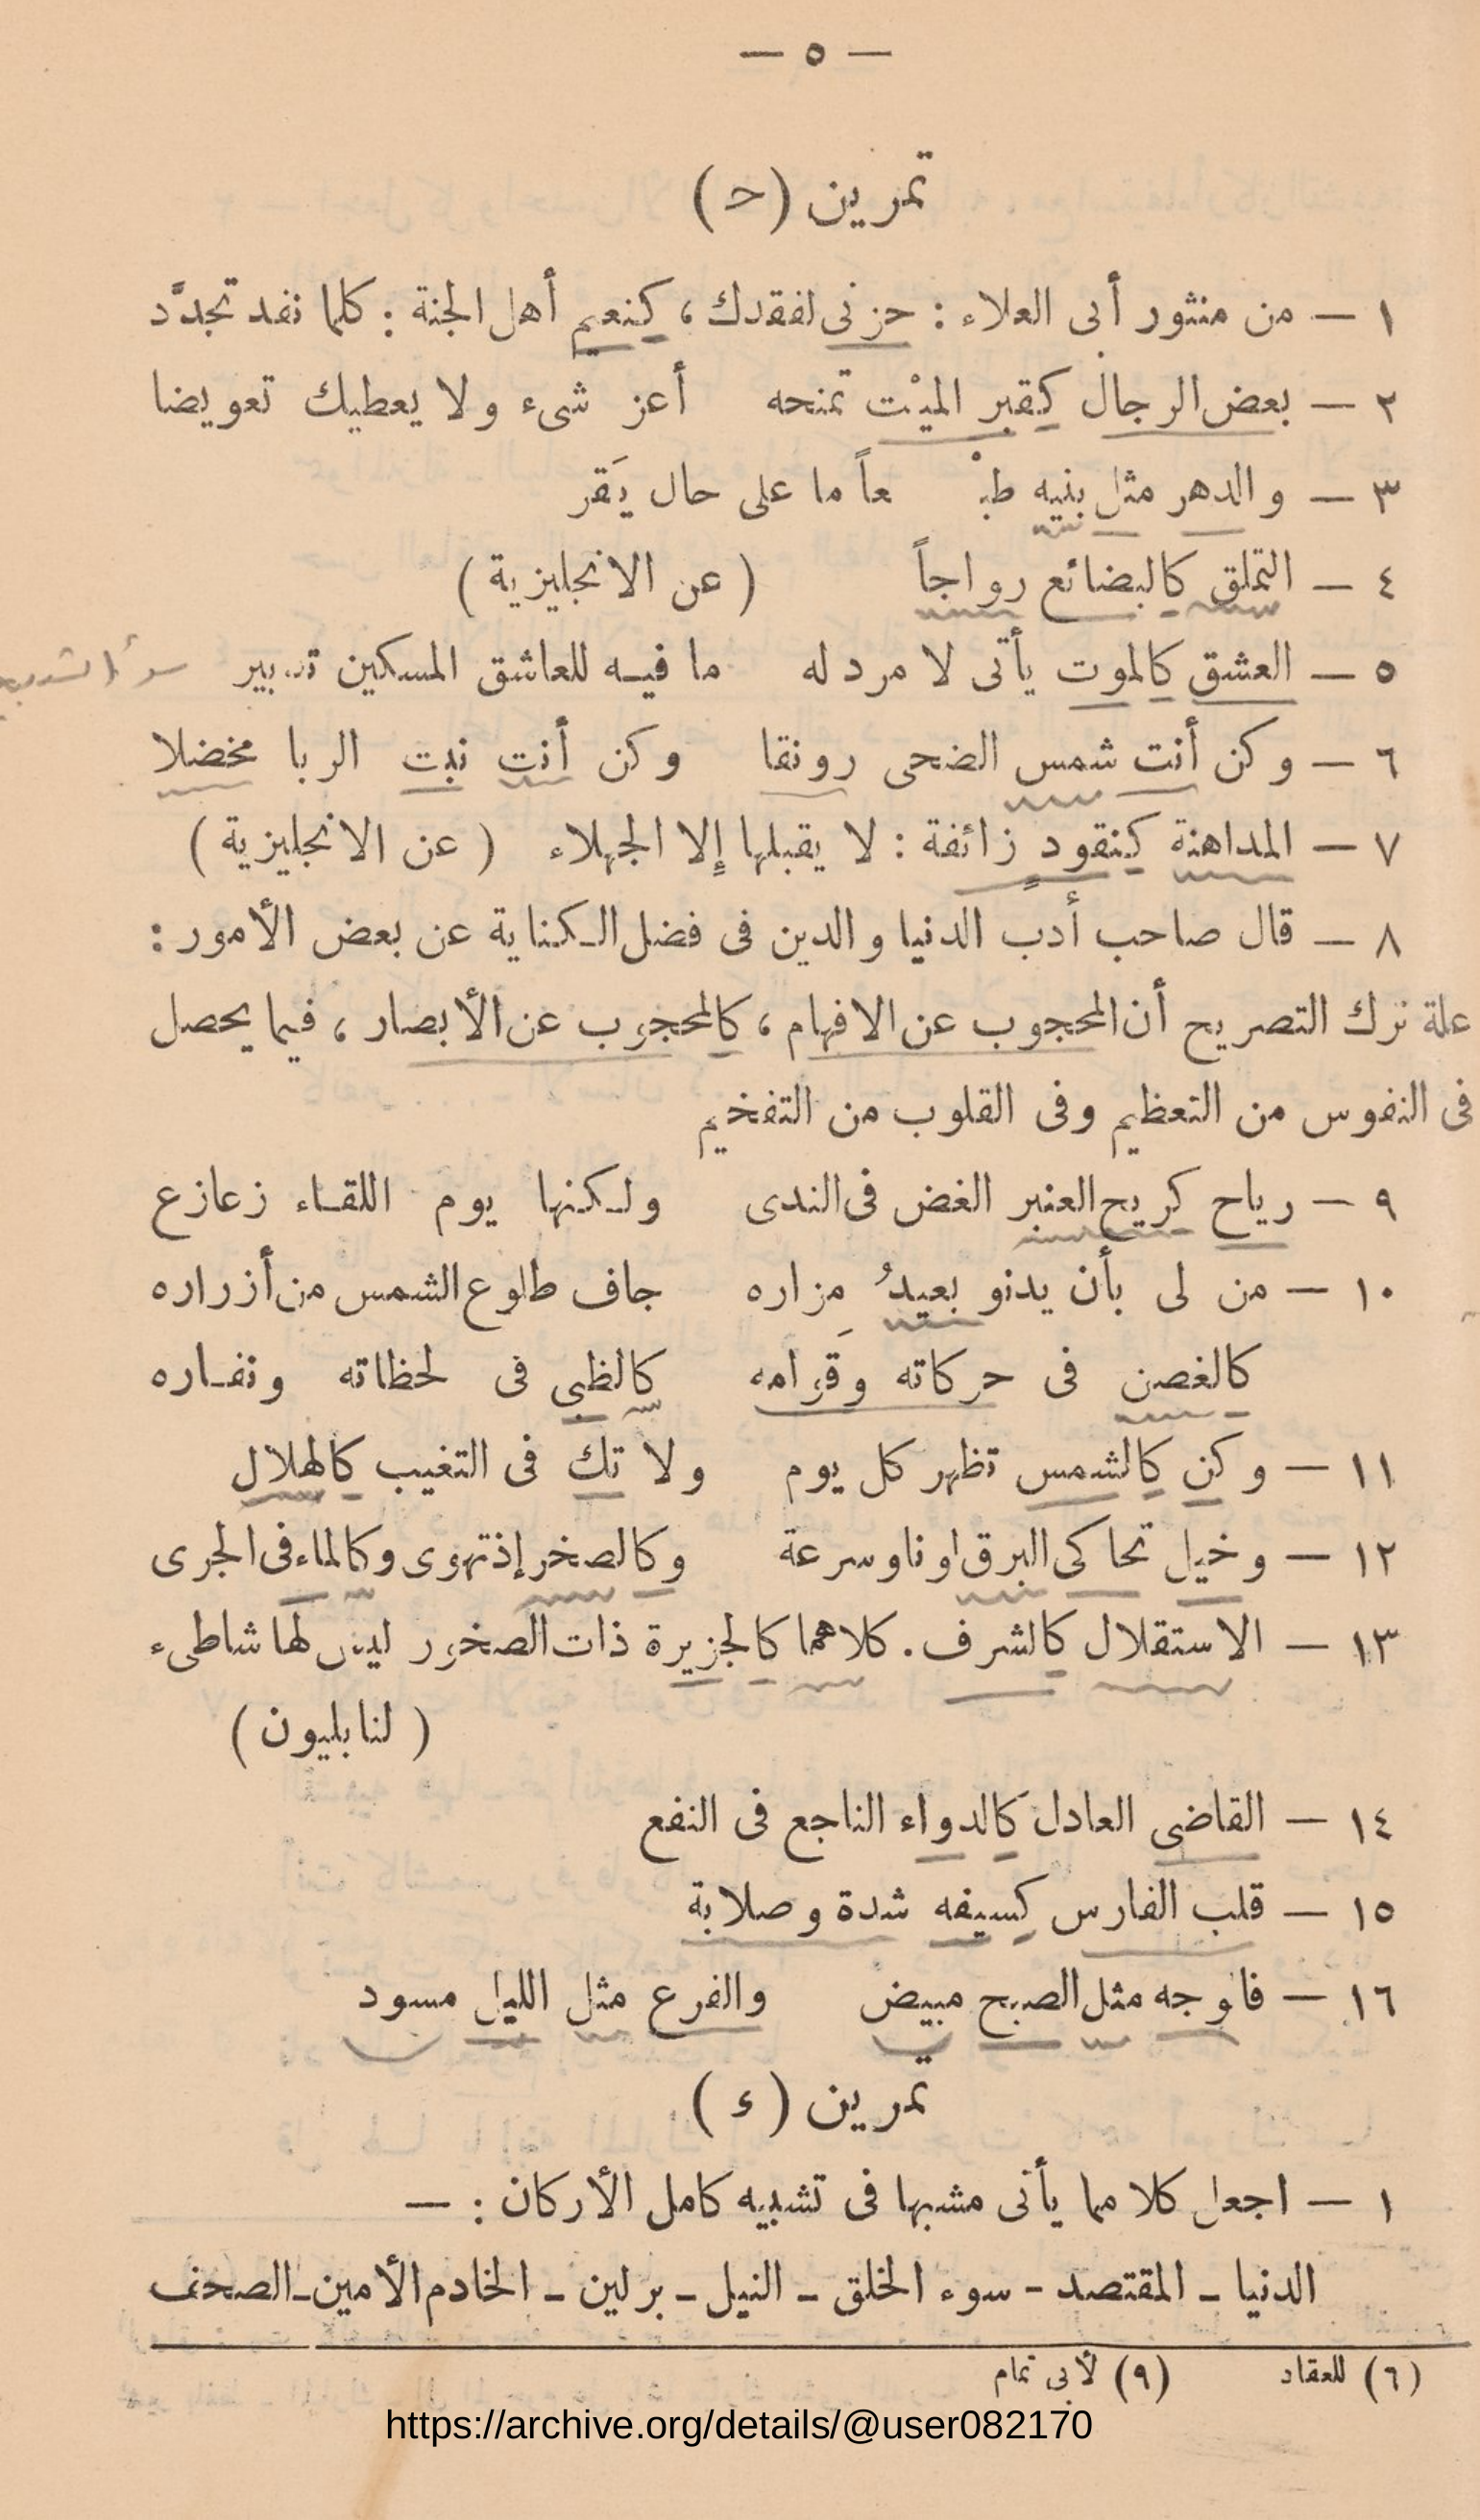 — ٥ —
تمرين (حـ)
١ — من منثور أبى العلاء : حزنى لفقدك ، كنعيم أهل الجنة : كلما نفد تجدَّد
٢ — بعض الرجال كقبر الميْت تمنحه أعز شىء ولا يعطيك تعويضا
٣ — والدهر مثل بنيه طبْـ ـعاً ما على حال يَقر
٤ — التملق كالبضائع رواجاً (عن الانجليزية)
٥ — العشق كالموت يأتى لا مرد له ما فيه للعاشق المسكين تدبير
٦ — وكن أنت شمس الضحى رونقا وكن أنت نبت الربا مخضلا
٧ — المداهنة كنقود زائفة : لا يقبلها إلا الجهلاء (عن الانجليزية)
٨ — قال صاحب أدب الدنيا والدين فى فضل الكناية عن بعض الأمور :
علة ترك التصريح أن المحجوب عن الافهام ، كالمحجوب عن الأبصار ، فيما يحصل
فى النفوس من التعظيم وفى القلوب من التفخيم
٩ — رياح كريح العنبر الغض فى الندى ولكنها يوم اللقاء زعازع
١٠ — من لى بأن يدنو بعيدُ مزاره جاف طلوع الشمس من أزراره
كالغصن فى حركاته وقَوامه كالظبى فى لحظاته ونفاره
١١ — وكن كالشمس تظهر كل يوم ولا تك فى التغيب كالهلال
١٢ — وخيل تحاكى البرق لونا وسرعة وكالصخر إذ تهوى وكالماء فى الجرى
١٣ — الاستقلال كالشرف . كلاهما كالجزيرة ذات الصخور ليس لها شاطىء
(لنابليون)
١٤ — القاضى العادل كالدواء الناجع فى النفع
١٥ — قلب الفارس كسيفه شدة وصلابة
١٦ — فالوجه مثل الصبح مبيض والفرع مثل الليل مسود
تمرين (ء)
١ — اجعل كلا مما يأتى مشبها فى تشبيه كامل الأركان : —
الدنيا ـ المقتصد ـ سوء الخلق ـ النيل ـ برلين ـ الخادم الأمين ـ الصحف
(٦) للعقاد (٩) لأبى تمام
https://archive.org/details/@user082170